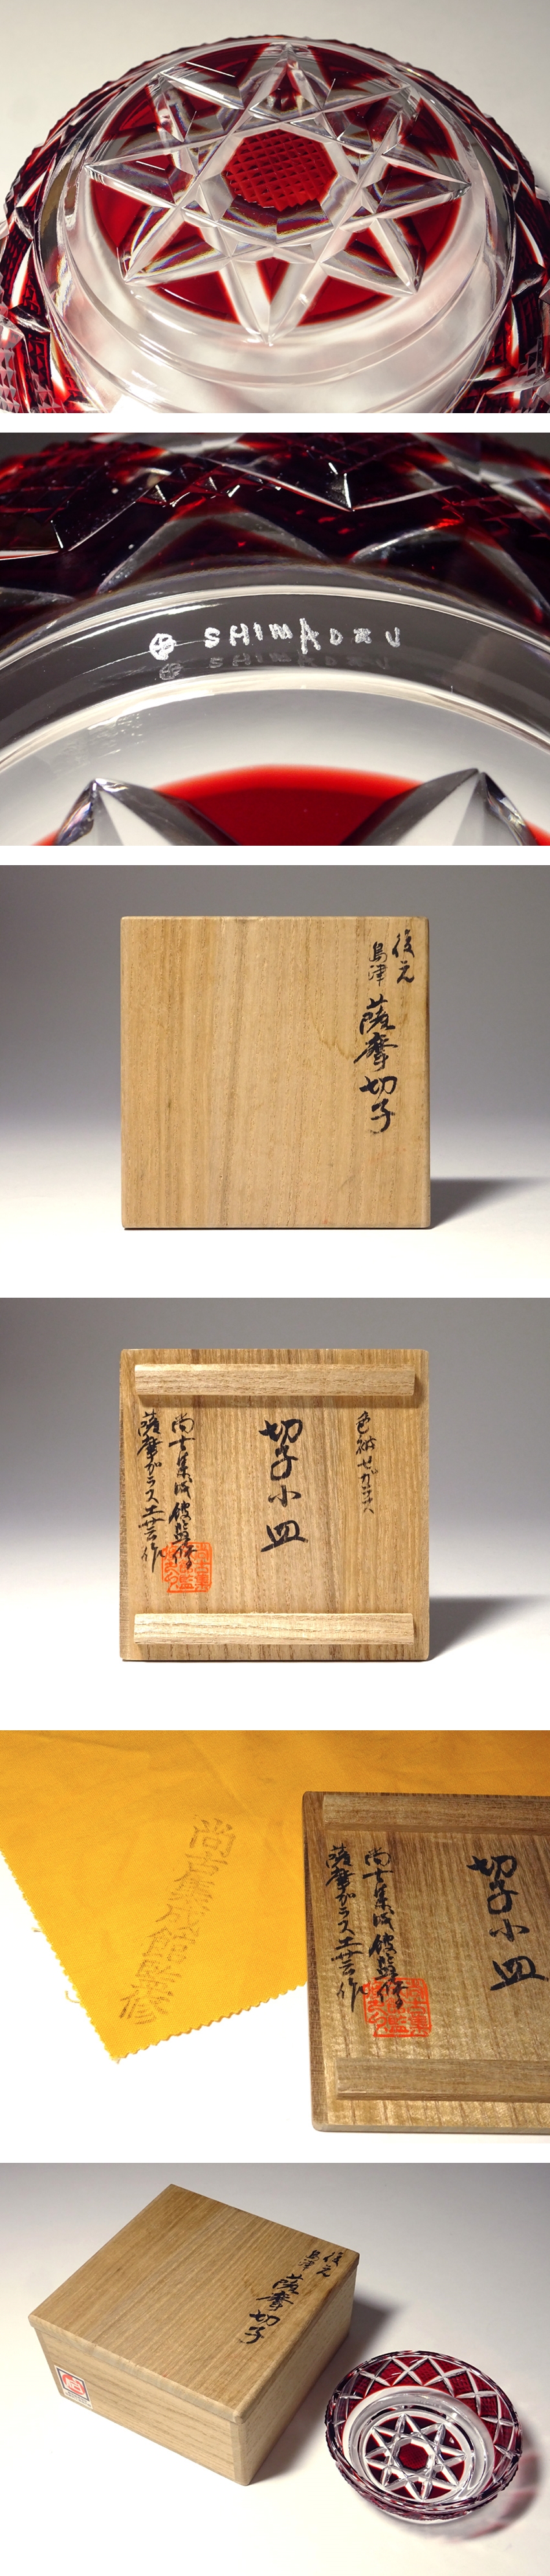 SHIMADZU
復元
島津
薩摩切子
色被せガラス
切子小皿
尚古集成館監修
薩摩ガラス工芸作
尚古集成館監修
切子小皿
尚古集成館監修
薩摩ガラス工芸作
復元
島津
薩摩切子